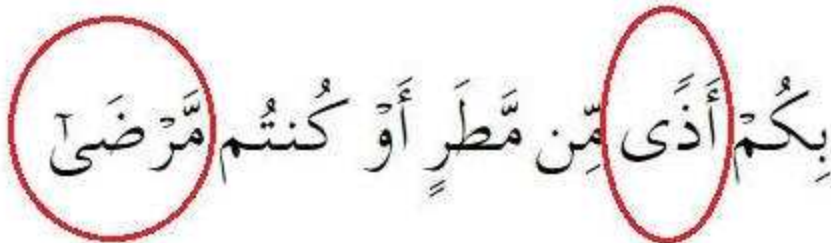 بِكُمۡ أَذٗى مِّن مَّطَرٍ أَوۡ كُنتُم مَّرۡضَىٰٓ